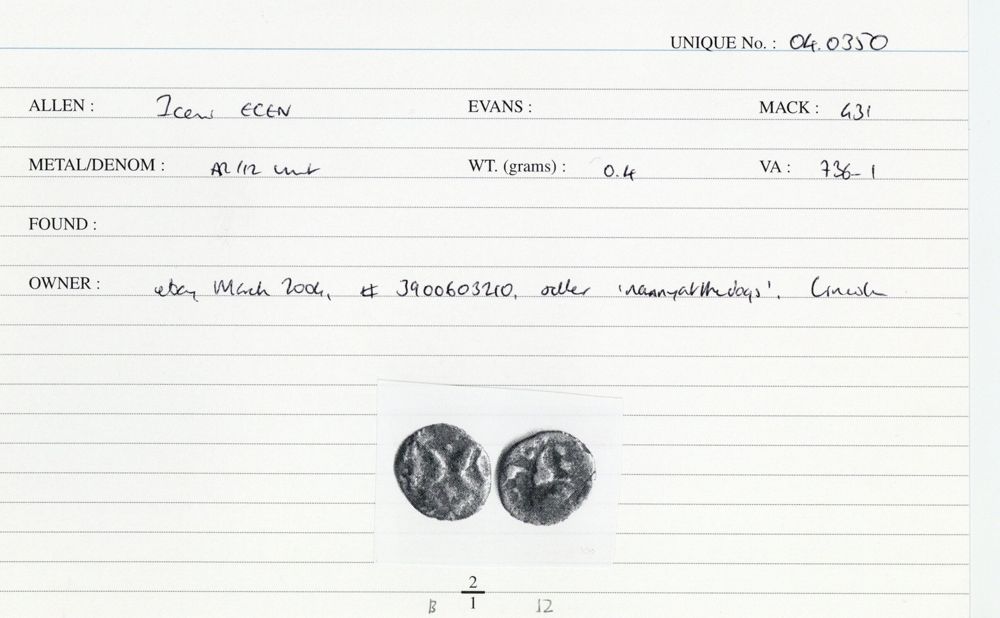 UNIQUE No. : 04.0350
ALLEN : Iceni ECEN EVANS : MACK : 431
METAL/DENOM : AR 1/2 unit WT. (grams) : 0.4 VA : 736-1
FOUND :
OWNER : ebay March 2004, # 3900603210, seller 'nannyatthedogs'. Lincoln
2
B 1 12